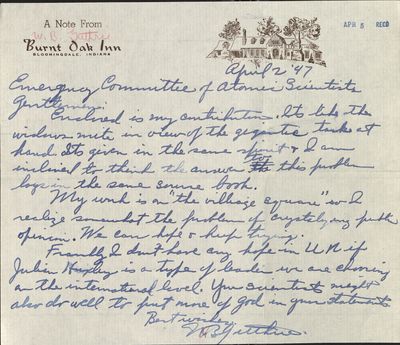 A Note From
W. B.
Burnt Oak Inn
BLOOMINGDALE, INDIANA
APR 5 RECD
April 2 '47
Emergency Committee of Atomic Scientists
Gentlemen:
Enclosed is my contribution. Its like the
widows mite in view of the gigantic task at
hand. Its given in the same spirit & I am
inclined to think the answer to this problem
lays in the same source book.
My work is on "the village square" so I
realize somewhat the problem of crystalyzing public
opinion. We can hope & keep trying.
Frankly I don't have any hope in U.N. if
Julian Huxley is a type of leader we are choosing
on the international level. You scientists might
also do well to put more of God in your statements
Best wishes